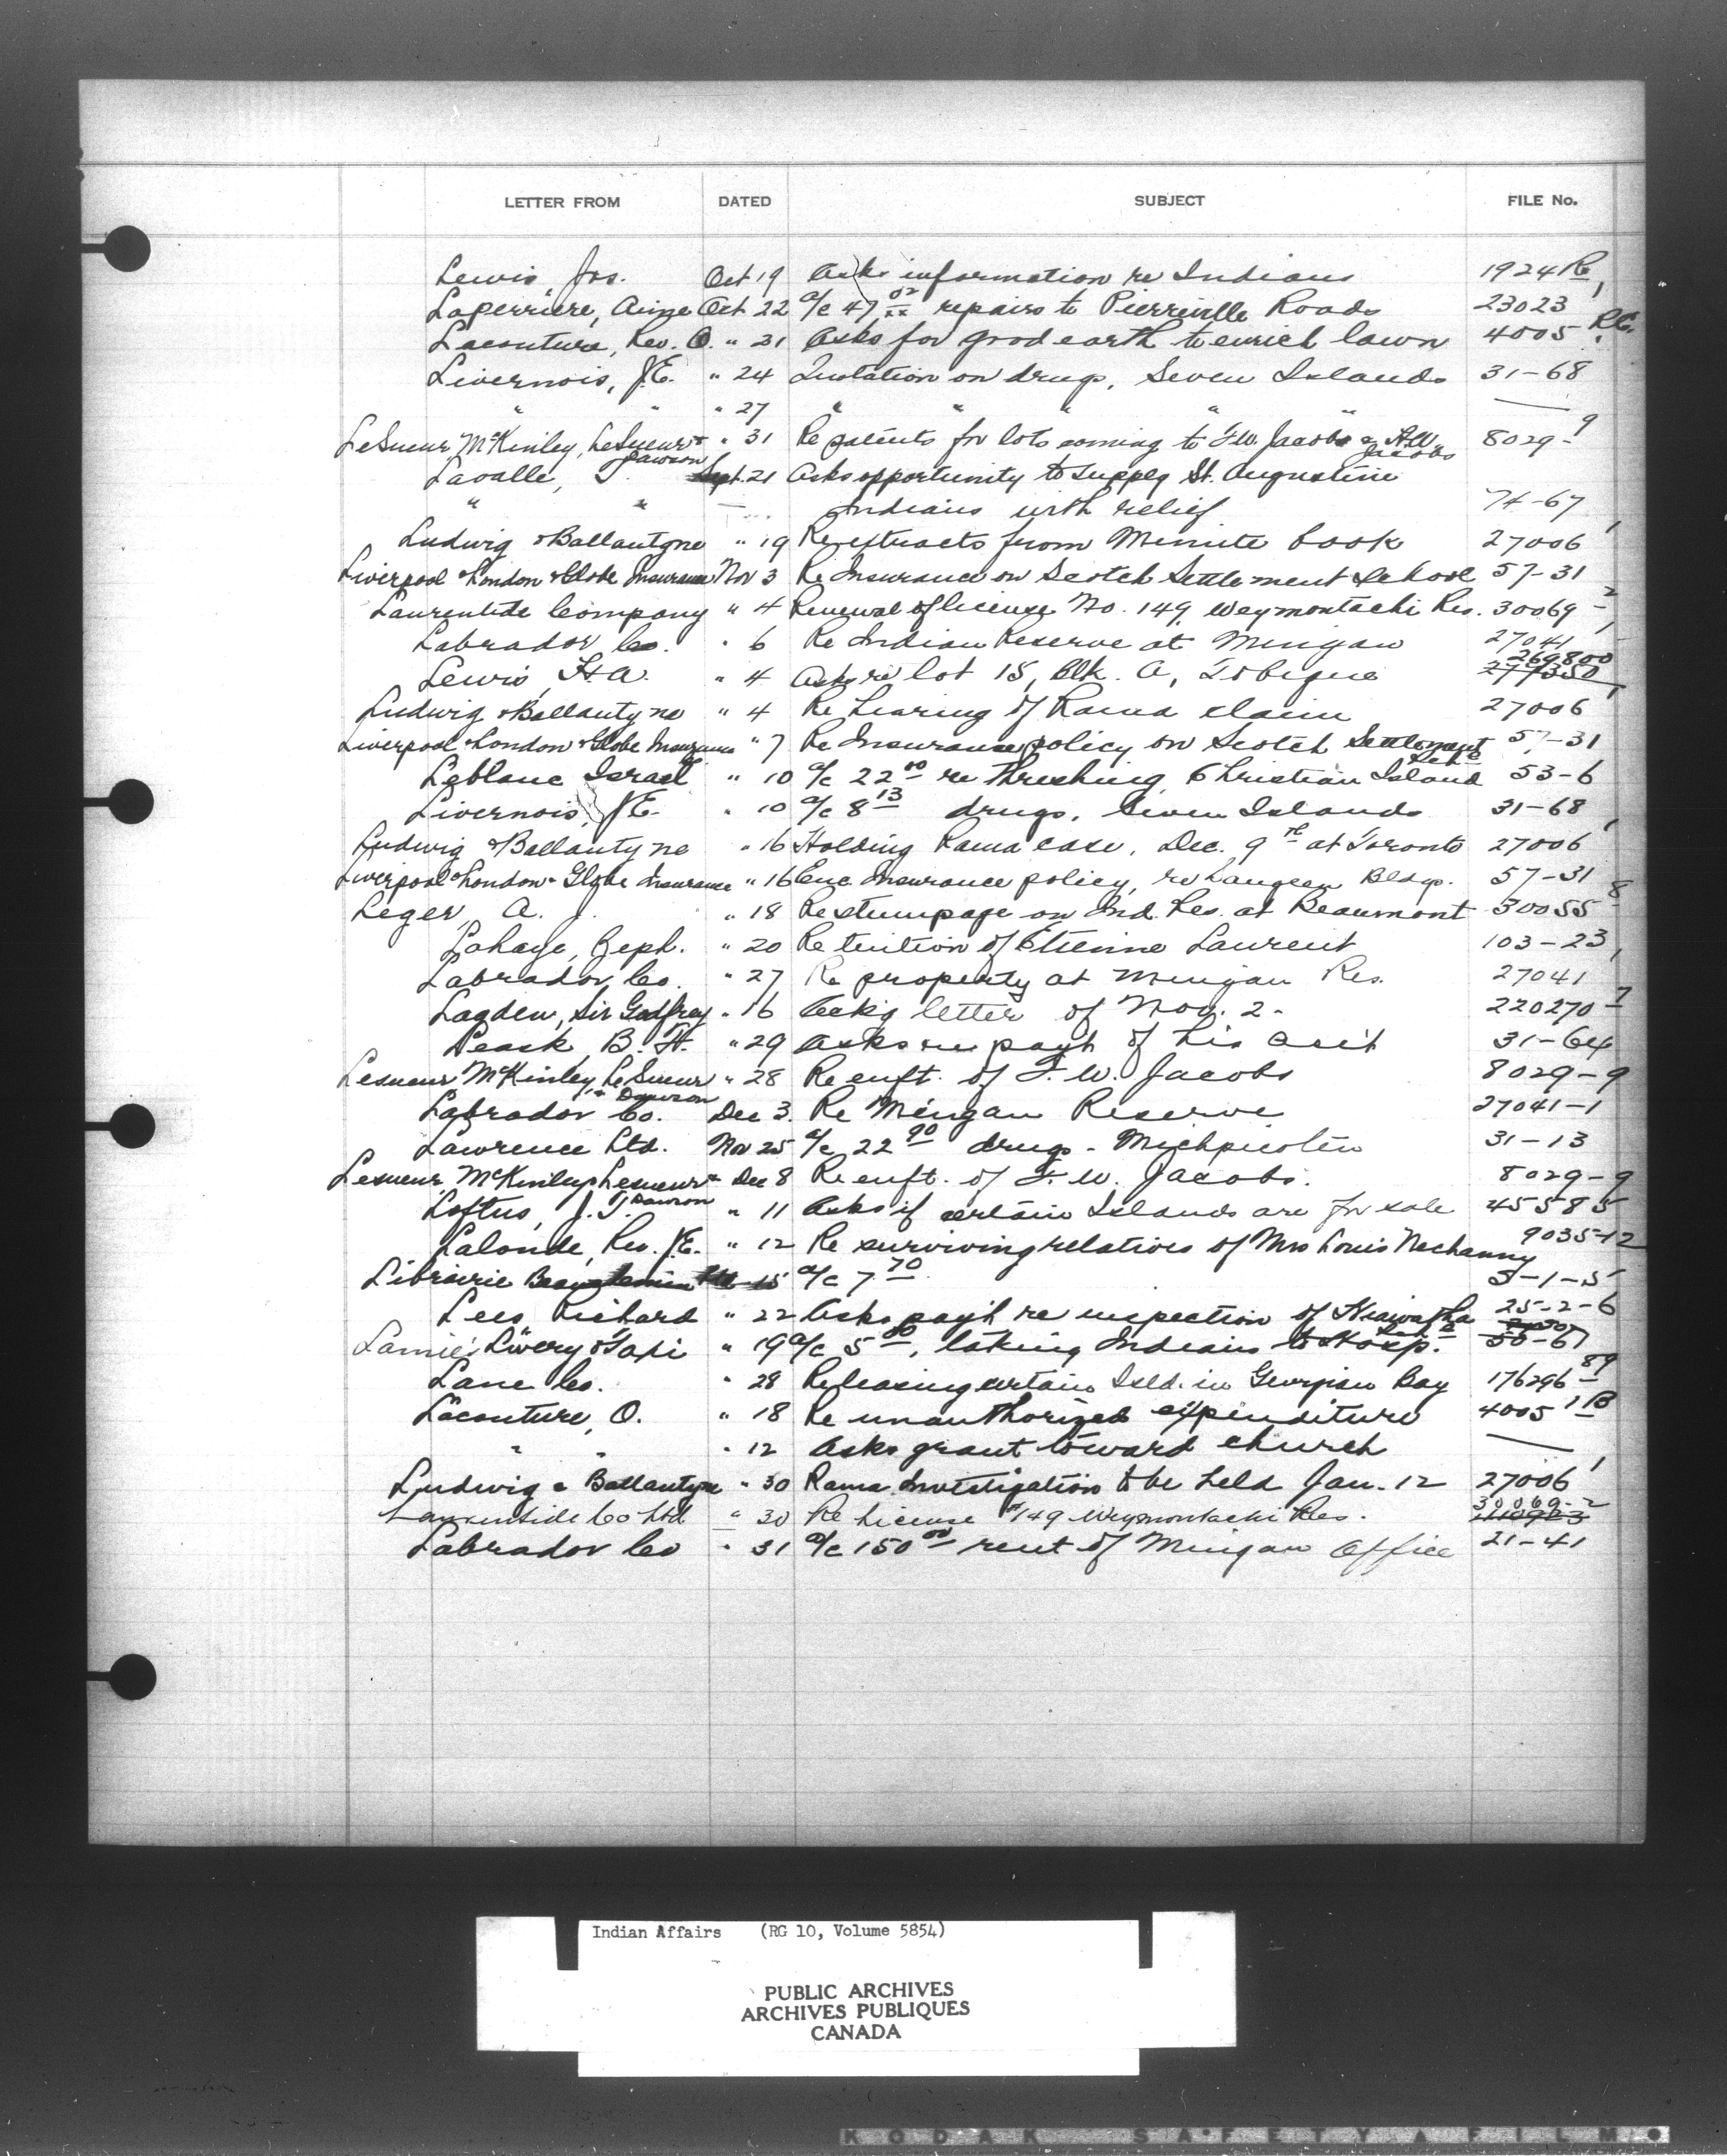 LETTER FROM DATED SUBJECT FILE No.
Lewis, Jos. Oct 19 Asks information re Indians 1924 Re
Laperriere, Aime Oct 22 a/c 47.02 repairs to Pierreville Roads 23023-1
Lacouture, Rev. O. " 21 Asks for good earth to enrich lawn 4005-1 R.C.
Livernois, J.E. " 24 Quotation on drugs, Seven Islands 31-68
" " " 27 " " " " " —
LeSueur, McKinley, LeSueur & Dawson " 31 Re patents for lots coming to F.W. Jacobs & A.W. Jacobs 8029-9
Lavalle, T. Sept. 21 Asks opportunity to supply St. Augustine
" " — Indians with relief 74-67
Ludwig & Ballantyne " 19 Re extracts from Minute book 27006-1
Liverpool & London & Globe Insurance Nov 3 Re Insurance on Scotch Settlement School 57-31
Laurentide Company " 4 Renewal of license No. 149, Weymontachi Res. 30069-2
Labrador Co. " 6 Re Indian Reserve at Mingan 27041-1
Lewis, H.A. " 4 Asks re lot 15, Blk. A, Tobique 277350 269800
Ludwig & Ballantyne " 4 Re Hearing of Rama claim 27006-1
Liverpool & London & Globe Insurance " 7 Re Insurance policy on Scotch Settlement Schl 57-31
Leblanc Israel " 10 a/c 22.00 re threshing, Christian Island 53-6
Livernois, J.E. " 10 a/c 8.13 drugs, Seven Islands 31-68
Ludwig & Ballantyne " 16 Holding Rama case, Dec. 9th at Toronto 27006-1
Liverpool & London & Globe Insurance " 16 Enc. Insurance policy, re Saugeen Bldgs. 57-31
Leger, A. J. " 18 Re stumpage on Ind. Res. at Beaumont 30055-8
Lahaye, Zeph. " 20 Re tuition of Etienne Laurent 103-23
Labrador Co. " 27 Re property at Mingan Res. 27041-1
Lagden, Sir Godfrey " 16 Ackg letter of Nov. 2. 220270-7
Leask, B. H. " 29 Asks re payt of his acct 31-64
Lesueur McKinley LeSueur & Dawson " 28 Re enft. of F. W. Jacobs 8029-9
Labrador Co. Dec 3. Re Mingan Reserve 27041-1
Lawrence Ltd. Nov 25 a/c 22.90 drugs - Michpicoten 31-13
Lesueur McKinley Lesueur & Dawson Dec 8 Re enft. of F. W. Jacobs. 8029-9
Loftus, J. T. " 11 Asks if certain Islands are for sale 455835
Lalonde, Rev. J.E. " 12 Re surviving relatives of Mrs Louis Nechanny 9035-12
Librairie Beauchemin Ltd 15 a/c 7.70 3-1-5
Lees, Richard " 22 Asks payt re inspection of Hiawatha Schl 25-2-6
Lamie's Livery & Taxi " 19 a/c 5.00, taking Indians to Hosp. 50-67
Lane Co. " 28 Re leasing certain Isld. in Georgian Bay 176296-89
Lacouture, O. " 18 Re unauthorized expenditure 4005-1B
" " " 12 Asks grant toward church —
Ludwig & Ballantyne " 30 Rama Investigation to be held Jan. 12 27006-1
Laurentide Co Ltd " 30 Re License #149 Weymontachi Res. 30069-2
Labrador Co " 31 a/c 150.00 rent of Mingan Office 21-41
Indian Affairs (RG 10, Volume 5854)
PUBLIC ARCHIVES
ARCHIVES PUBLIQUES
CANADA
KODAK SAFETY FILM